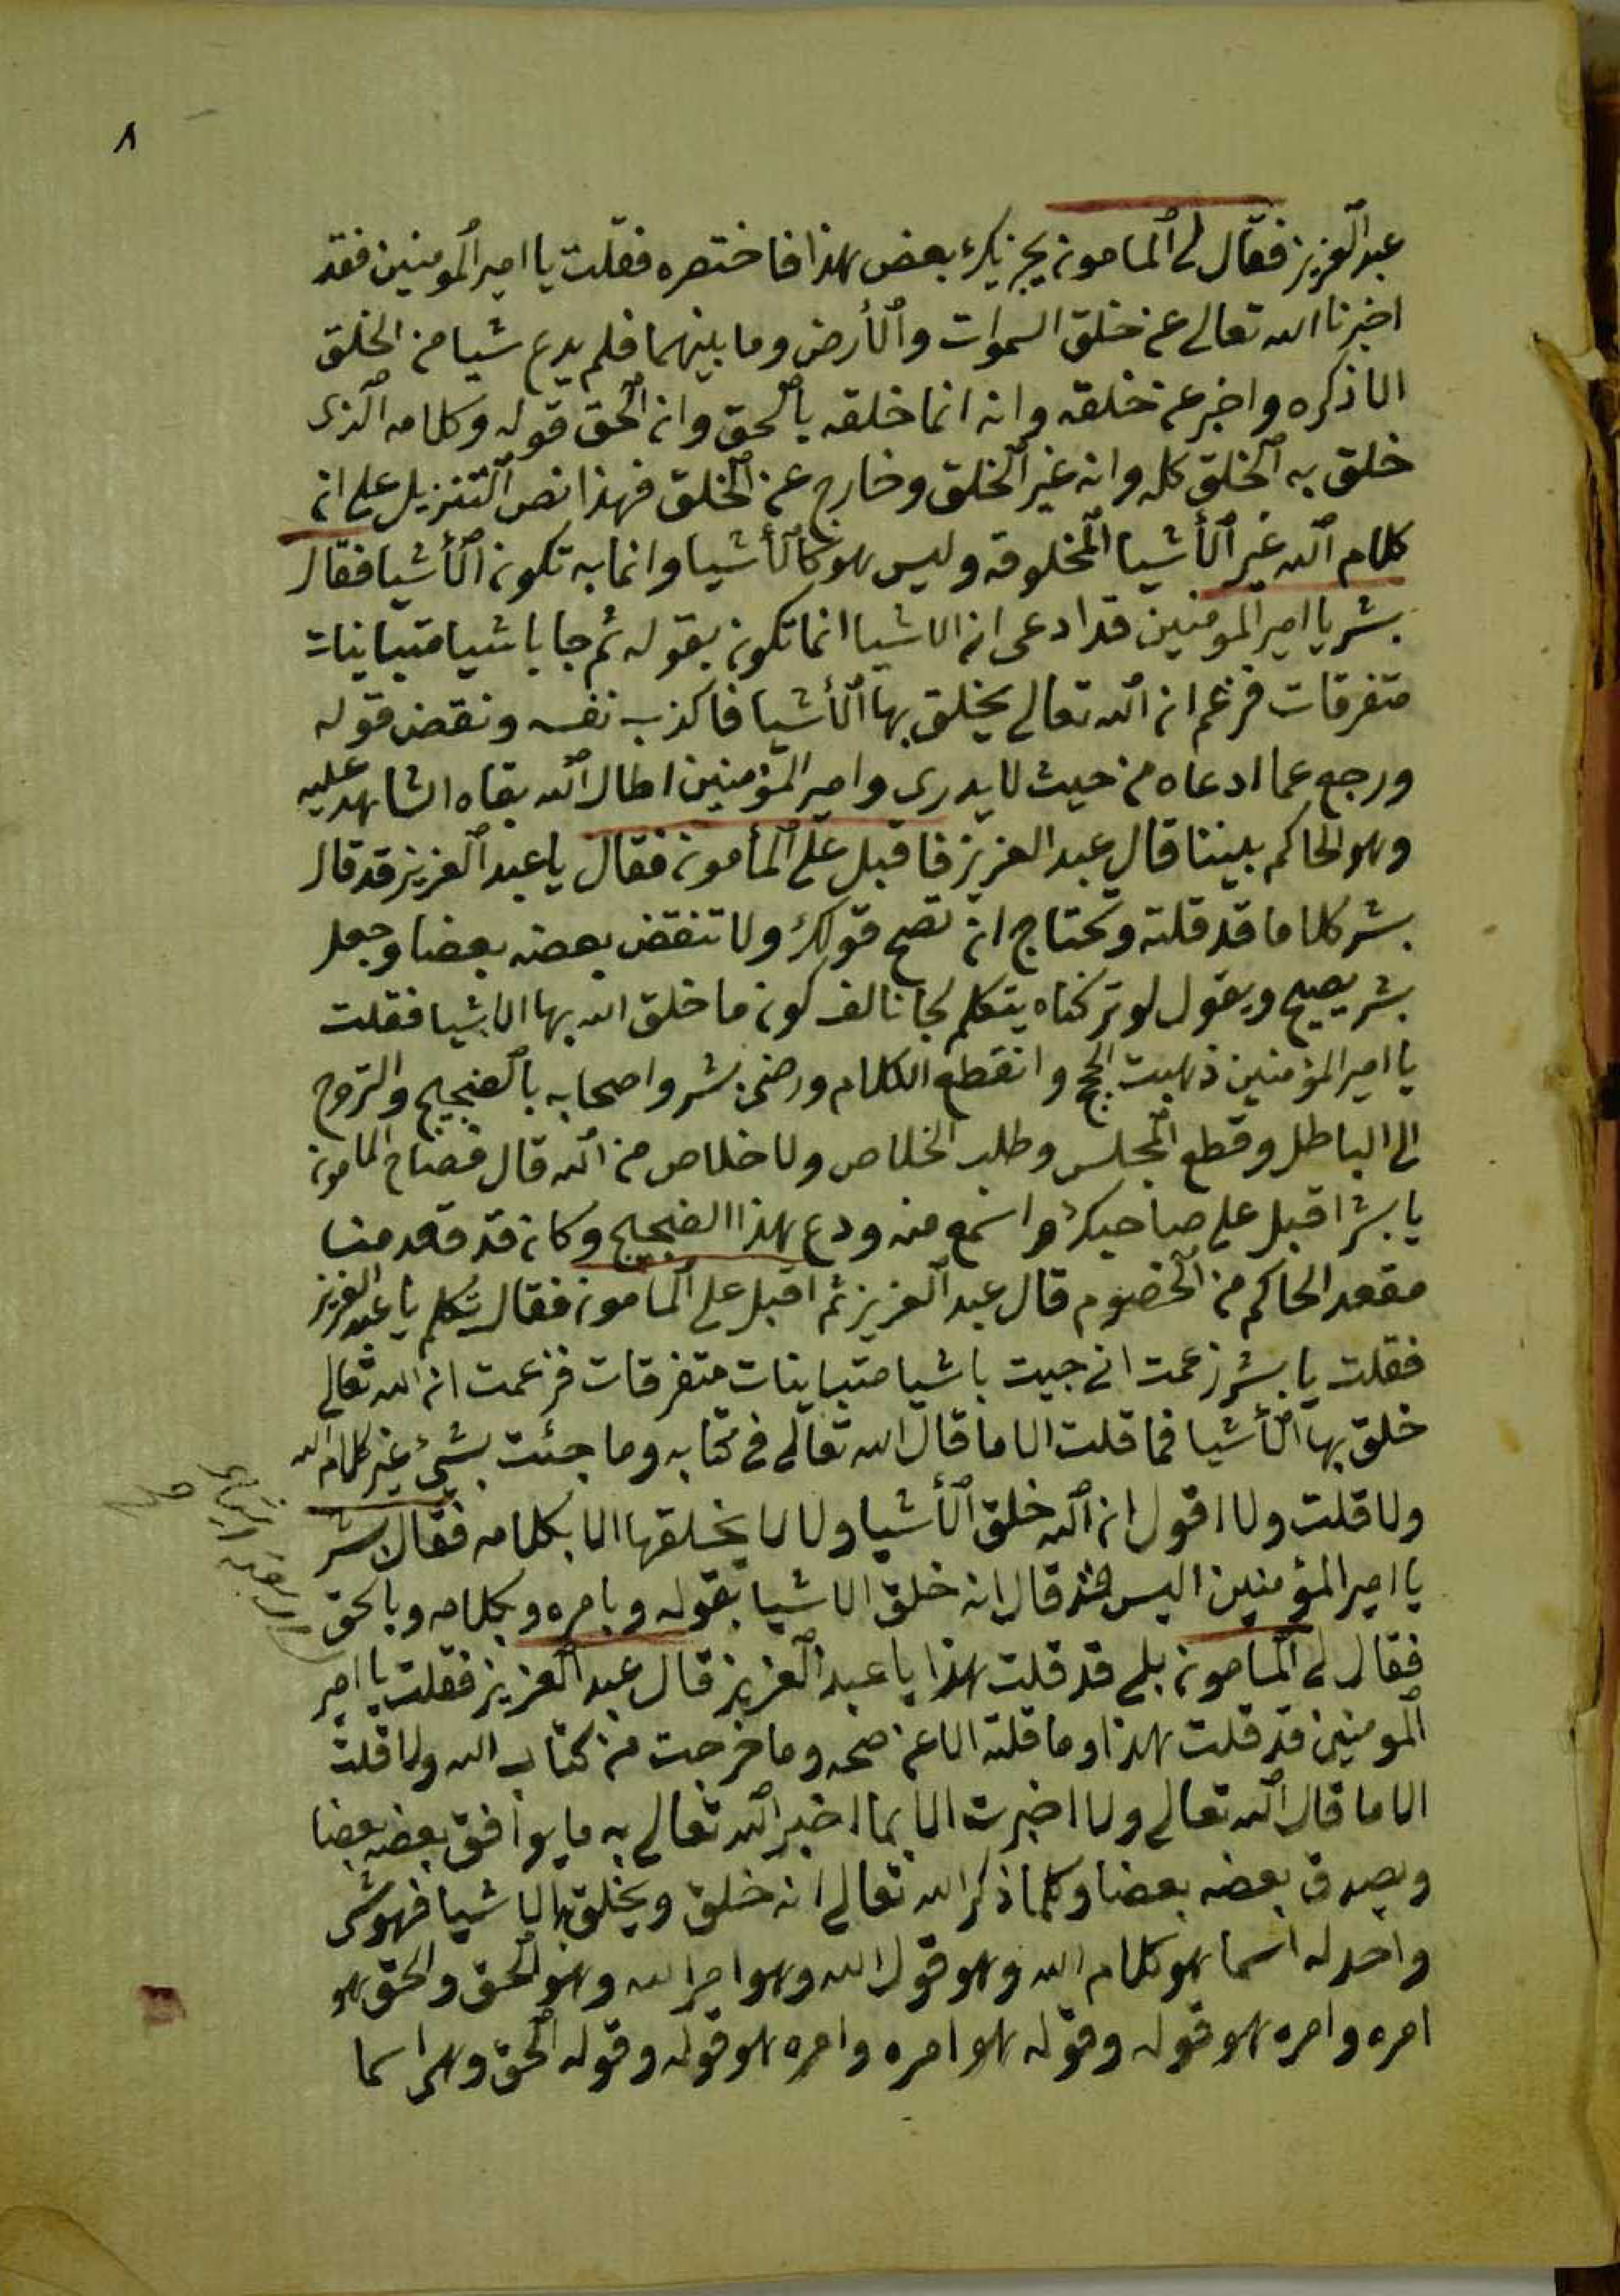 ٨
عبد العزيز فقال لي المامون يجزيك بعض هذا فاختصره فقلت يا امير المومنين فقد
اخبرنا الله تعالى عن خلق السموات والأرض وما بينهما فلم يدع شيا من الخلق
الا ذكره واخبر عن خلقه وانه انما خلقه بالحق وان الحق قوله وكلامه الذي
خلق به الخلق كله وانه غير الخلق وخارج عن الخلق فهذا نص التنزيل على ان
كلام الله غير الأشيا المخلوقه وليس هو كالأشيا وانما به تكون الأشيا فقال
بشر يا امير المومنين قد ادعى ان الاشيا انما تكون بقوله ثم جا باشيا متباينات
متفرقات فزعم ان الله تعالى يخلق بها الأشيا فاكذب نفسه ونقض قوله
ورجع عما ادعاه من حيث لا يدري وامير المؤمنين اطال الله بقاه الشاهد عليه
وهو الحاكم بيننا قال عبد العزيز فاقبل علي المأمون فقال يا عبد العزيز قد قال
بشر كلاما قد قلته وتحتاج ان تصح قولك ولا تنقض بعضه بعضا وجعل
بشر يصيح ويقول لو تركناه يتكلم لجانا الف لون ما خلق الله بها الاشيا فقلت
يا امير المؤمنين ذهبت الحجج وانقطع الكلام ورضي بشر واصحابه بالضجيج والتروح
الى الباطل وقطع المجلس وطلب الخلاص ولا خلاص من الله قال فصاح المامون
يا بشر اقبل على صاحبك واسمع منه ودع هذا الضجيج وكان قد قعد منا
مقعد الحاكم من الخصوم قال عبد العزيز ثم اقبل علي المامون فقال تكلم يا عبد العزيز
فقلت يا بشر زعمت اني جيت باشيا متباينات متفرقات فزعمت ان الله تعالى
خلق بها الأشيا فما قلت الا ما قال الله تعالى في كتابه وما جئت بشيء غير كلام الله
ولا قلت ولا اقول ان الله خلق الأشيا ولا لا يخلقها الا بكلامه فقال بشر
يا امير المؤمنين اليس قد قال انه خلق الاشيا بقوله وبامره وبكلامه وبالحق
فقال لي المامون بلى قد قلت هذا يا عبد العزيز قال عبد العزيز فقلت يا امير
المومنين قد قلت هذا وما قلته الا عن صحه وما خرجت من كتاب الله ولا قلت
الا ما قال الله تعالى ولا اخبرت الا بما اخبر الله تعالى به ما يوافق بعضه بعضا
ويصدق بعضه بعضا وكلما ذكر الله تعالى انه خلق ويخلق بها الاشيا فهو شي
واحد له اسما هو كلام الله وهو قول الله وهو امر الله وهو الحق والحق هو
امره وامره هو قوله وقوله هو امره وامره هو قوله وقوله الحق وهي اسما